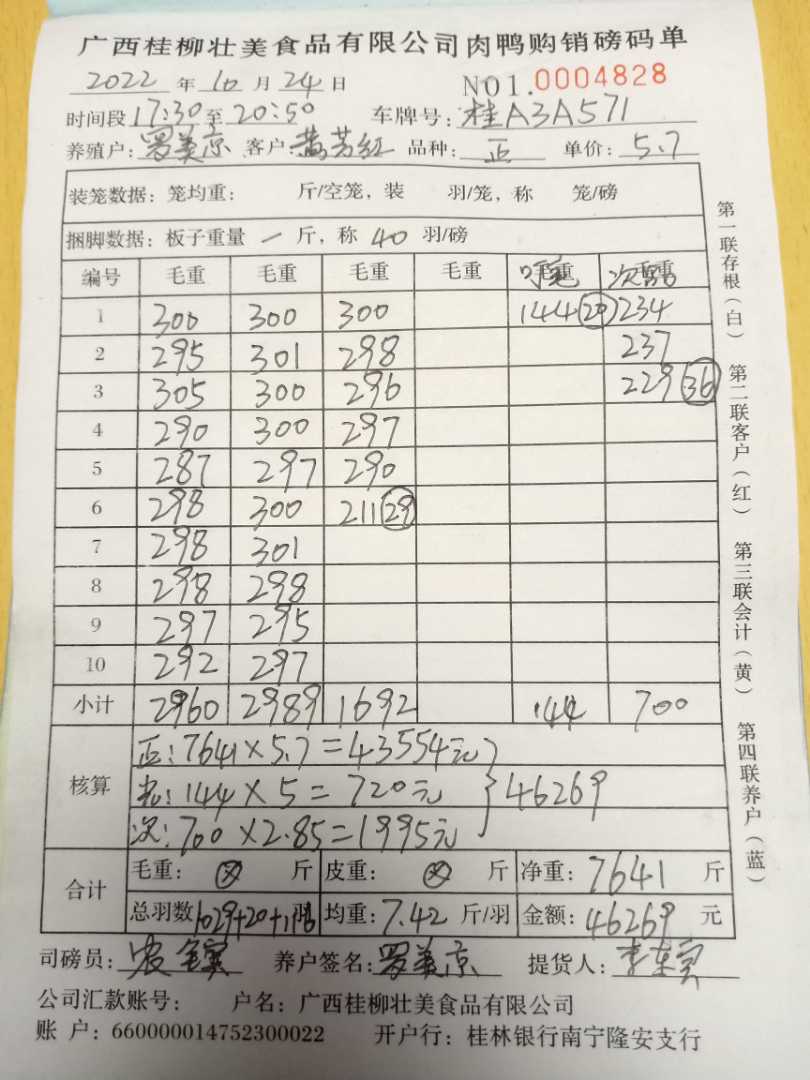 广西桂柳壮美食品有限公司肉鸭购销磅码单
2022 年 10 月 24 日 NO1.0004828
时间段 17:30 至 20:50 车牌号: 桂A3A571
养殖户: 罗美京 客户: 黄芳红 品种: 正 单价: 5.7
装笼数据: 笼均重: 斤/空笼, 装 羽/笼, 称 笼/磅
捆脚数据: 板子重量 一 斤, 称 40 羽/磅
编号 毛重 毛重 毛重 毛重 毛重 毛重
1 300 300 300 144 (20) 234
2 295 301 298 237
3 305 300 296 229 (36)
4 290 300 297
5 287 297 290
6 298 300 211 (29)
7 298 301
8 298 298
9 297 295
10 292 297
小计 2960 2989 1692 144 700
核算
正: 7641×5.7=43554元
144×5=720元 } 46269
次: 700×2.85=1995元
合计
毛重: 斤 皮重: 斤 净重: 7641 斤
总羽数 1029+20+ 均重: 7.42 斤/羽 金额: 46269 元
司磅员: 养户签名: 罗美京 提货人: 李东
公司汇款账号: 户名: 广西桂柳壮美食品有限公司
账 户: 660000014752300022 开户行: 桂林银行南宁隆安支行
第一联存根(白) 第二联客户(红) 第三联会计(黄) 第四联养户(蓝)